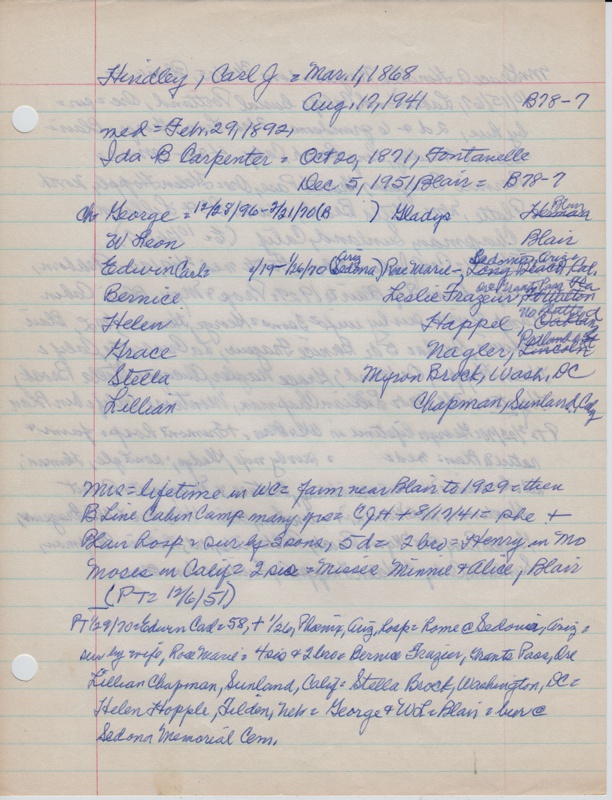 Hindley, Carl J = Mar. 1, 1868
Aug. 17, 1941 B78-7
med = Feb. 29, 1892,
Ida B Carpenter = Oct 20, 1871, Fontanelle
Dec 5, 1951, Blair = B78-7
Ch George = 12/28/96 - 3/21/70 (B ) Gladys Herman Blair
W Leon Blair
Edwin Carl = 1/26/70 (Sedona) Ariz Rose Marie -, Long Beach, Cal. Sedona, Ariz
Bernice Leslie Frazeur, Grants Pass
Helen Happel, Oakland
Grace Nagler, Lincoln
Stella Myron Brock, Wash, DC
Lillian Chapman, Sunland, Calif
Mrs = lifetime in WC = farm near Blair to 1929 = then
B Line Cabin Camp many yrs = CJH + 8/17/41 = she +
Blair hosp = sur by 3 sons, 5 d = 2 bro = Henry in Mo
Moses in Calif = 2 sis = Misses Minnie & Alice, Blair
(PT = 12/6/51)
PT 1/29/70 = Edwin Carl = 58, + 1/26, Phoenix, Ariz, hosp = home @ Sedona, Ariz =
sur by wife, Rose Marie = 4 sis & 2 bro = Bernice Frazier, Grants Pass, Ore
Lillian Chapman, Sunland, Calif = Stella Brock, Washington, DC =
Helen Hopple, Tilden, Neb = George & WL = Blair = bur @
Sedona Memorial Cem.